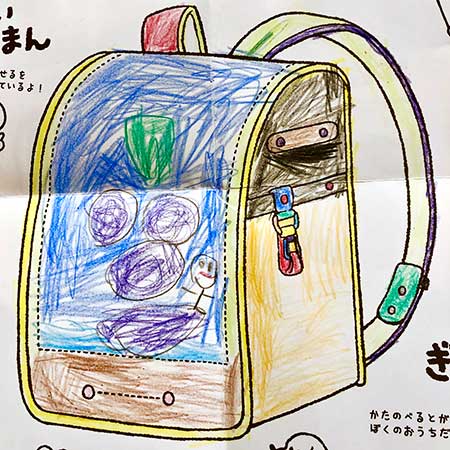 い
まん
せるを
ているよ！
ぎ
かたのべるとが
ぼくのおうちだ